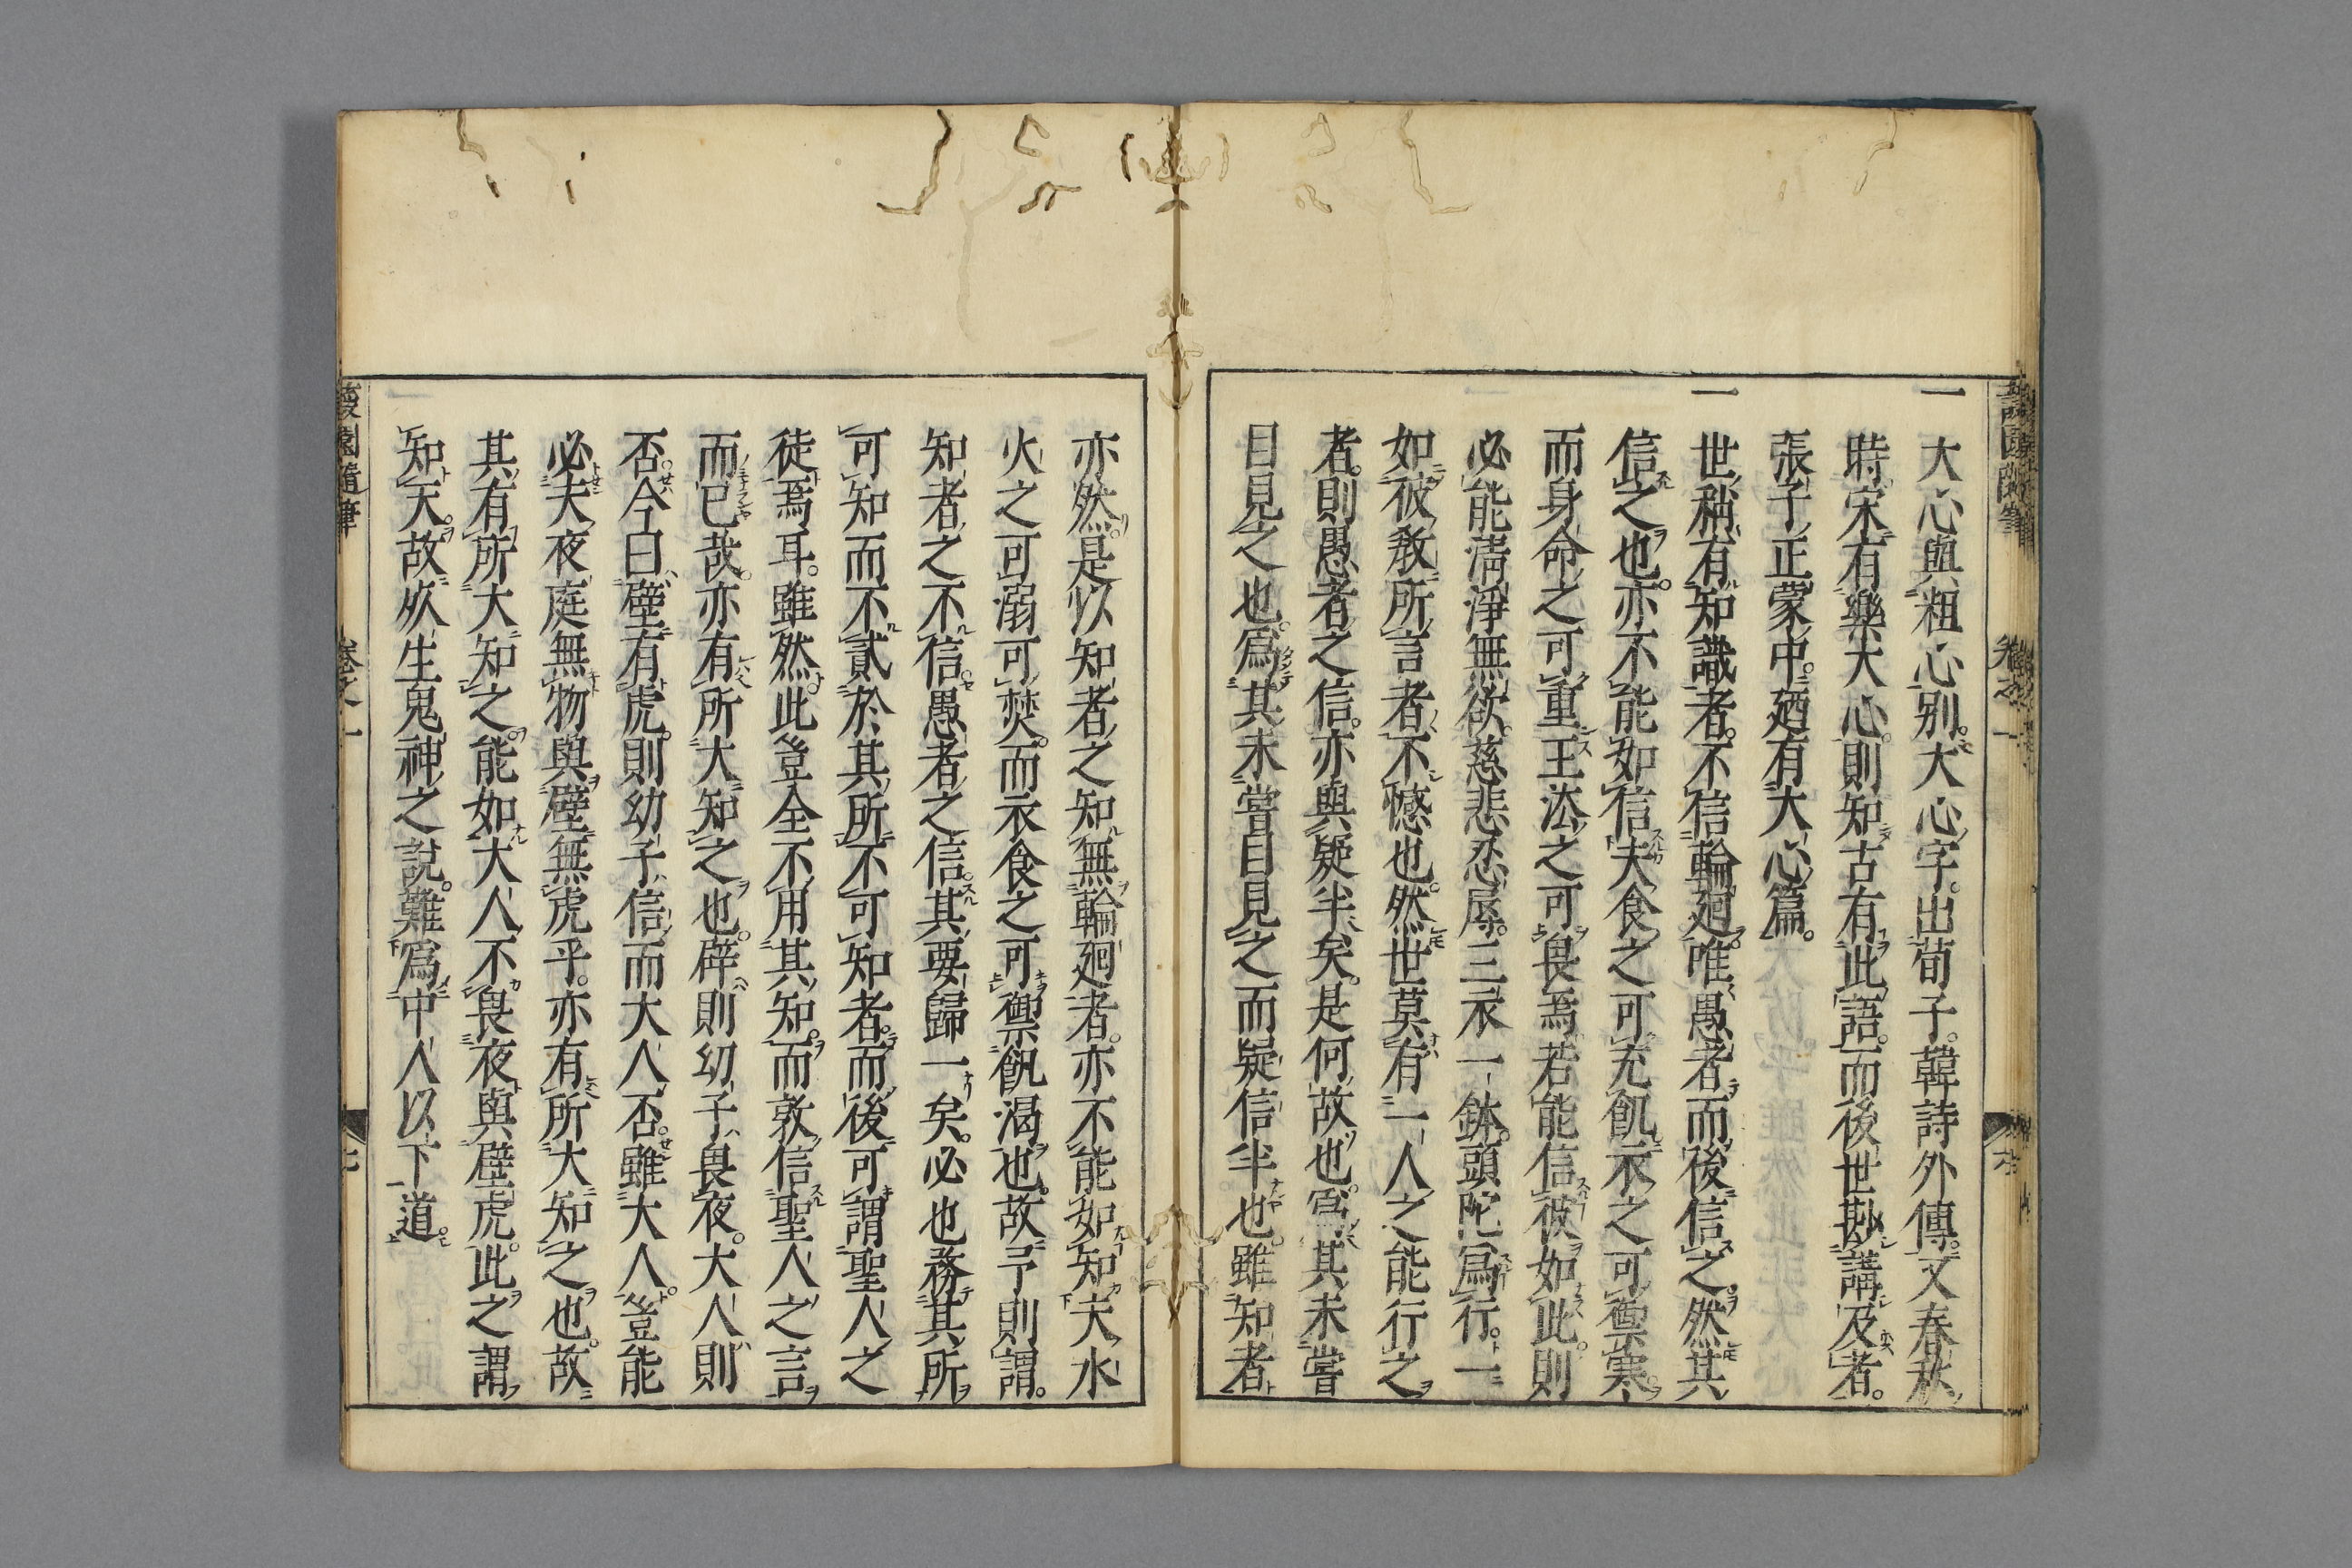 一
大心與粗心別。大心字。出荀子。韓詩外傳。又春秋
時。宋有樂大心。則知古有此語。而後世尠講及者。
張子正蒙中。廼有大心篇。
一
世稱有知識者。不信輪廻。唯愚者而後信之。然其
信之也。亦不能如信夫食之可充飢衣之可禦寒。
而身命之可重王法之可畏焉。若能信彼如此。則
必能淸淨無欲。慈悲忍辱。三衣一鉢。頭陀爲行。一
如彼敎所言者不憾也。然世莫有一人之能行之
者。則愚者之信。亦與疑半矣。是何故也。爲其未嘗
目見之也。爲其未嘗目見之而疑信半也。雖知者
亦然。是以知者之知無輪廻者。亦不能如知夫水
火之可溺可焚。而衣食之可禦飢渴也。故予則謂。
知者之不信。愚者之信。其要歸一矣。必也務其所
可知而不貳於其所不可知者。而後可謂聖人之
徒焉耳。雖然。此豈全不用其知。而敦信聖人之言
而已哉。亦有所大知之也。辟則幼子畏夜。大人則
否。今曰壁有虎。則幼子信而大人否。雖大人。豈能
必夫夜庭無物與壁無虎乎。亦有所大知之也。故
其有所大知之。能如大人不畏夜與壁虎。此之謂
知天。故夗生鬼神之說。難爲中人以下道。
蘐園隨筆
卷之一
七
卷之一
六